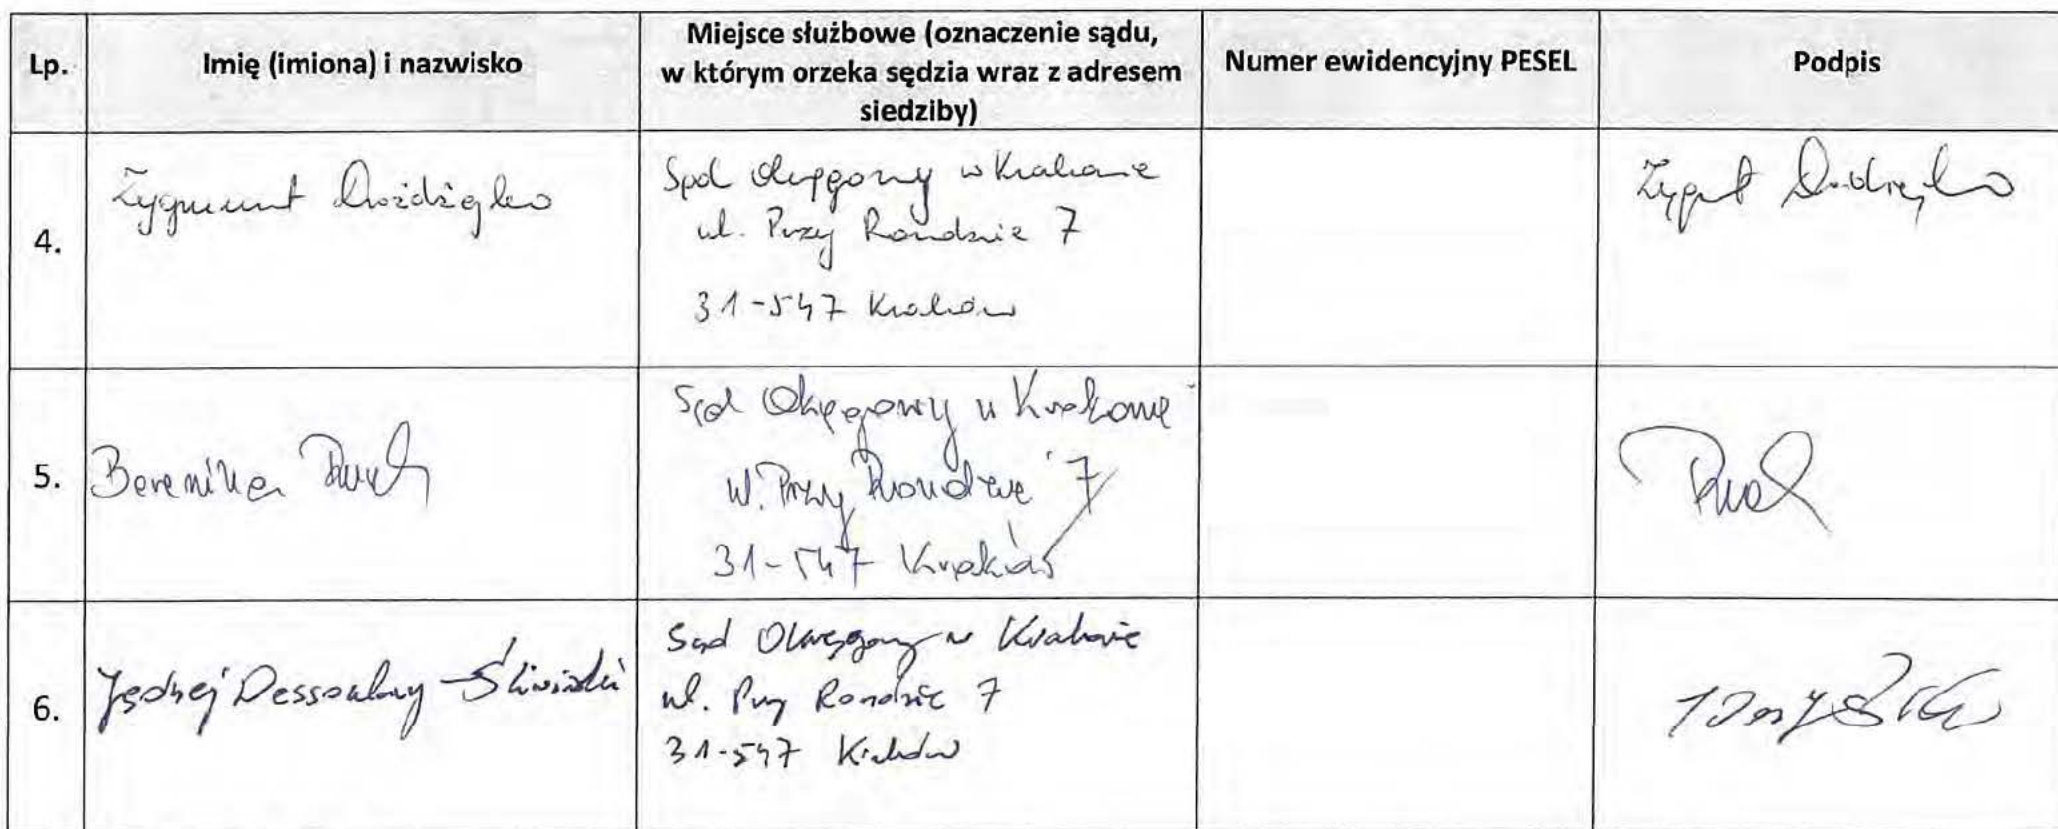 Lp.
Imię (imiona) i nazwisko
Miejsce służbowe (oznaczenie sądu,
w którym orzeka sędzia wraz z adresem
siedziby)
Numer ewidencyjny PESEL
Podpis
4.
Zygmunt Drożdżejko
Sąd Okręgowy w Krakowie
ul. Przy Rondzie 7
31-547 Kraków
5.
Berenika
Sąd Okręgowy w Krakowie
ul. Przy Rondzie 7
31-547 Kraków
6.
Jędrzej Dessoulavy-Śliwiński
Sąd Okręgowy w Krakowie
ul. Przy Rondzie 7
31-547 Kraków